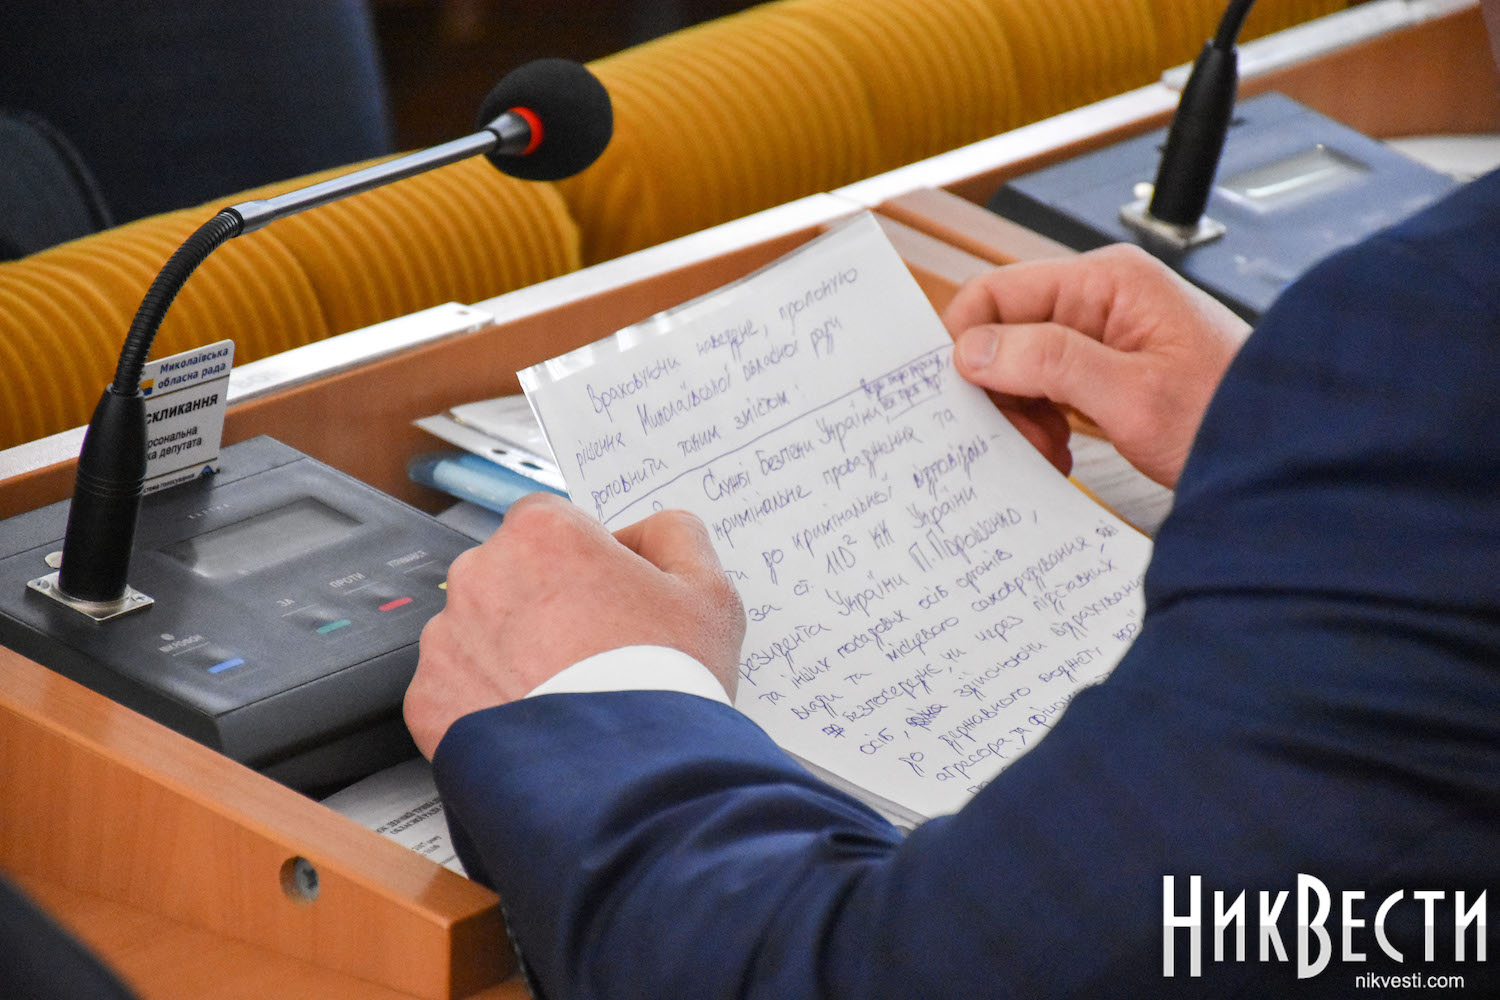 Миколаївська
обласна рада
скликання
рсональна
ка депутата
стема голосування
ЗА
ПРОТИ
УТРИМАВСЯ
МІКРОФОН
Враховуючи наведене, пропоную
рішення Миколаївської обласної ради
доповнити таким змістом:
Службі Безпеки України
кримінальне провадження та
ти до кримінальної відповідаль-
за ст 110² КК України
резидента України П. Порошенко,
та інших посадових осіб органів
влади та місцевого самоврядування які
безпосередньо, чи через підставних
осіб, здійснюючи відрахування
до державного бюджету
агресора, та
НикВести
nikvesti.com